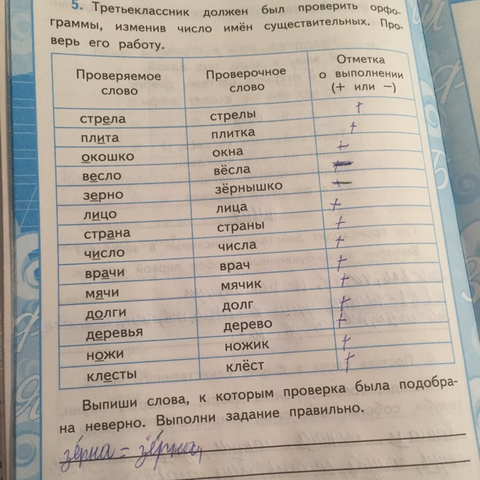 5. Третьеклассник должен был проверить орфо-
граммы, изменив число имён существительных. Про-
верь его работу.
Проверяемое слово Проверочное слово Отметка о выполнении (+ или −)
стрела стрелы +
плита плитка +
окошко окна +
весло вёсла +
зерно зёрнышко +
лицо лица +
страна страны +
число числа +
врачи врач +
мячи мячик +
долги долг +
деревья дерево +
ножи ножик +
клесты клёст +
Выпиши слова, к которым проверка была подобра-
на неверно. Выполни задание правильно.
зёрна = зёрна,